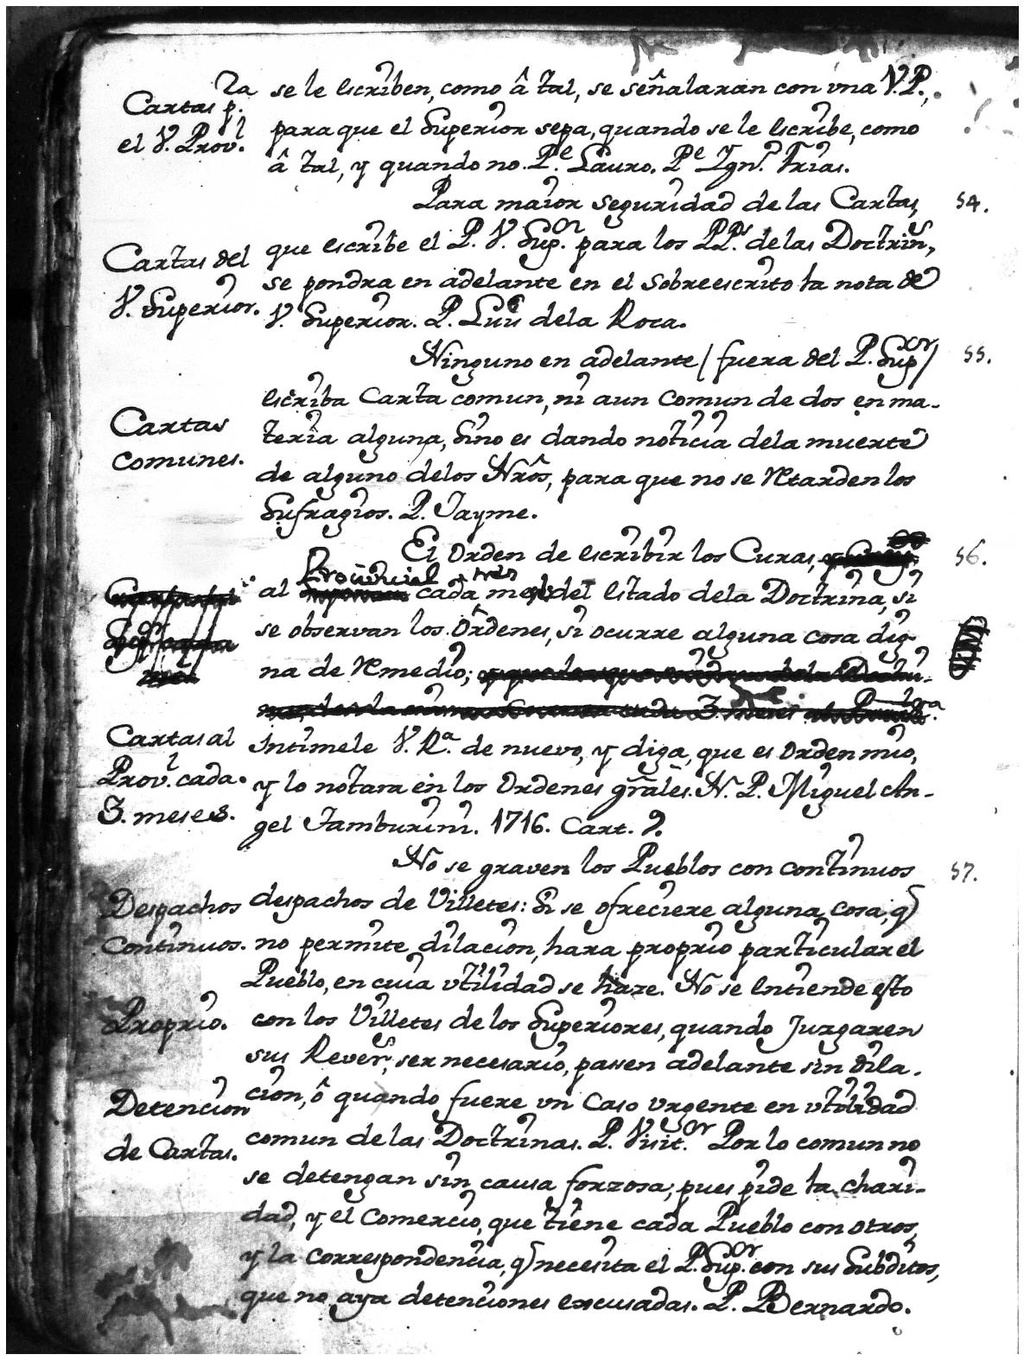 Cartas p.ra
el V. Prov.l
se le escriben, como â tal, se señalaran con vna V.P.,
para que el Superior sepa, quando se le escribe, como
â tal, y quando no. P.e Lauro. P.e Ign.o Frias.
Para maior seguridad de las Cartas, 54.
Cartas del
V. Superior.
que escribe el P. V. Sup.or para los PP.s de las Doctrin.s,
se pondra en adelante en el sobreescrito la nota de
V. Superior. P. Luis de la Roca.
Ninguno en adelante / fuera del P. Sup.or / 55.
Cartas
comunes.
escriba Carta comun, ni aun comun de dos en ma-
teria alguna, sino es dando noticia dela muerte
de alguno delos Nrôs, para que no se Retarden los
Sufragios. P. Jayme.
El Orden de escribir los Curas, 56.
al Provincial cada tres mes del Estado dela Doctrina, si
se observan los Ôrdenes, si ocurre alguna cosa dig-
na de Remedio;
Cartas al
Prov.l cada
3. meses.
Intimele V. R.a de nuevo, y diga, que es Orden mio,
y lo notara en los Ordenes grãles. N. P. Miguel An-
gel Tamburini. 1716. Cart. 9.
No se graven los Pueblos con continuos 57.
Despachos
Continuos.
despachos de Villetes: Si se ofreciere alguna cosa, q
no permite dilacion, hara proprio particular el
Pueblo, en cuia vtilidad se haze. No se entiende esto
Proprio.
con los Villetes de los Superiores, quando Juzgaren
sus Rever.s, ser necesario, pasen adelante sin dila-
Detencion
de Cartas.
cion, ô quando fuere vn Caso vrgente en vtilidad
comun de las Doctrinas. P. Visit.or Por lo comun no
se detengan sin causa forzosa; pues pide la chari-
dad, y el Comercio, que tiene cada Pueblo con otros,
y la correspondencia, q necesita el P. Sup.or con sus Subditos,
que no aya detenciones excusadas. P. Bernardo.